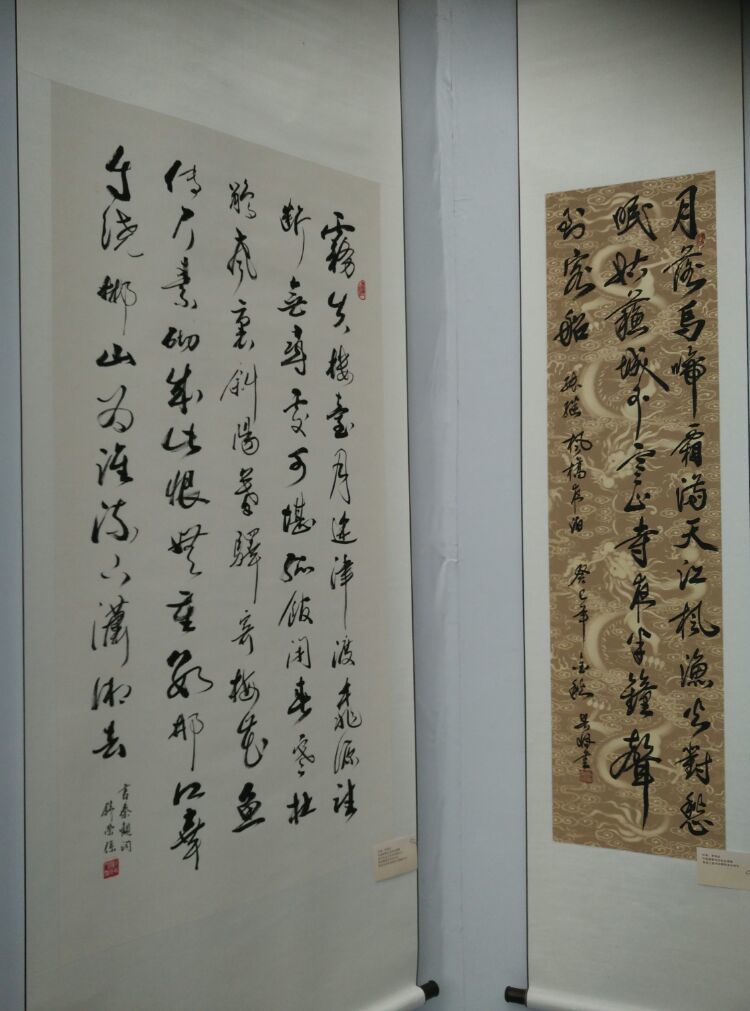 月落烏啼霜滿天江楓漁火對愁
眠姑蘇城外寒山寺夜半鐘聲
到客船 張繼 楓橋夜泊 癸巳年 金秋 書
霧失樓臺月迷津渡桃源望
斷無尋處可堪孤館閉春寒杜
鵑聲裏斜陽暮驛寄梅花魚
傳尺素砌成此恨無重數郴江幸
自繞郴山為誰流下瀟湘去
書秦觀詞